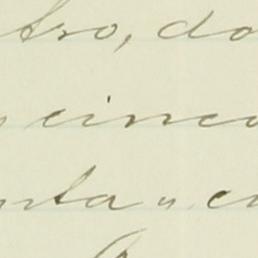 tro, do
cinco
nta " c